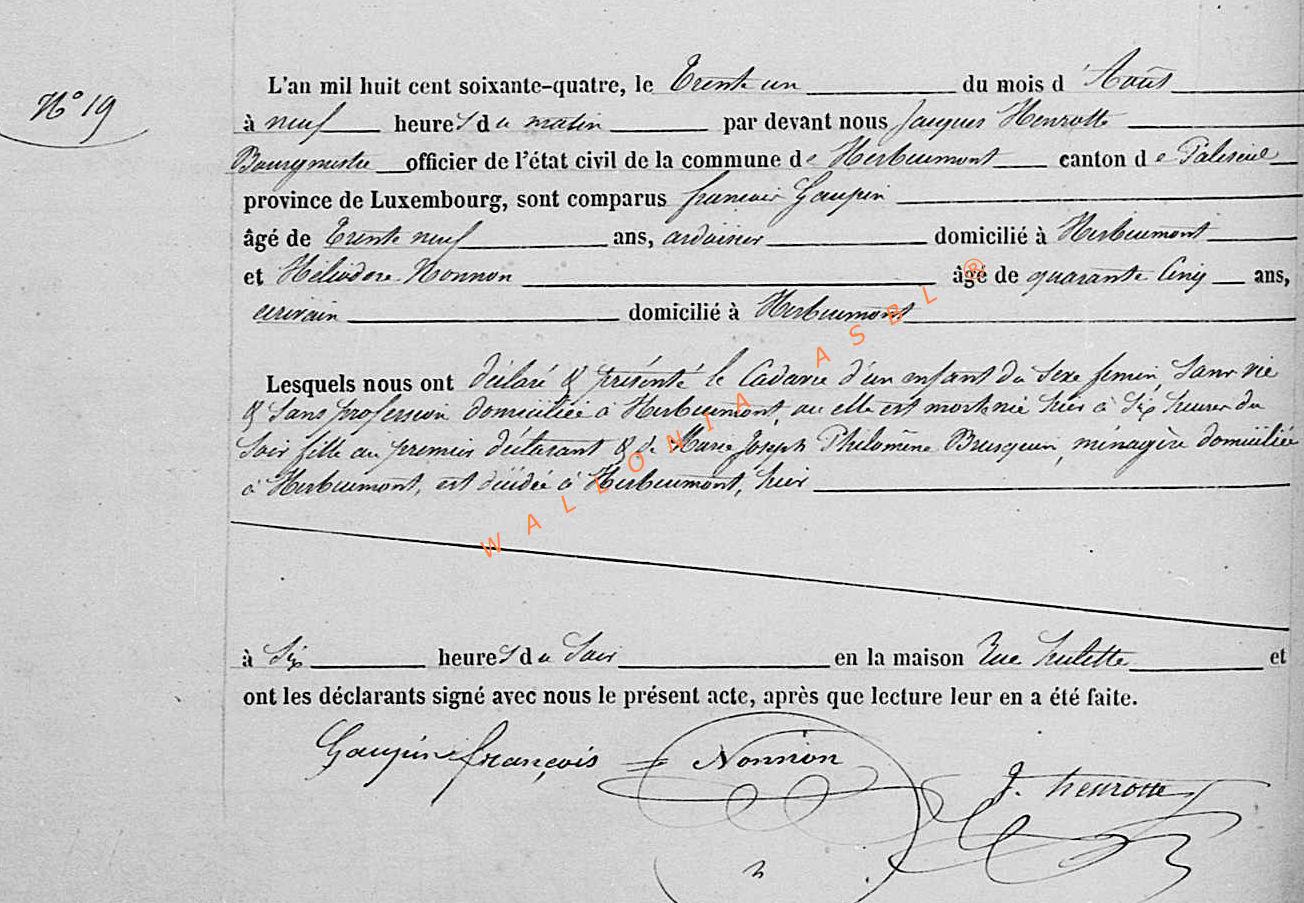 N° 19
L'an mil huit cent soixante-quatre, le Trente un du mois d'Août
à neuf heures du matin par devant nous Jacques Henrotte
Bourgmestre officier de l'état civil de la commune de Herbeumont canton de Paliseul
province de Luxembourg, sont comparus françois Gaupin
âgé de Trente neuf ans, ardoisier domicilié à Herbeumont
et Héliodore Nonnon âgé de quarante Cinq ans,
écrivain domicilié à Herbeumont
Lesquels nous ont déclaré & présenté le Cadavre d'un enfant du Sexe feminin Sans vie
& Sans profession domiciliée à Herbeumont, ou elle est mort née hier à Six heures du
Soir fille au premier déclarant & de Marie Joseph Philomène Busquin, ménagère domiciliée
à Herbeumont, est décédée à Herbeumont, hier
à Six heures du Soir en la maison Rue et
ont les déclarants signé avec nous le présent acte, après que lecture leur en a été faite.
Gaupin françois Nonnon
J. henrotte
WALLONIA ASBL ®